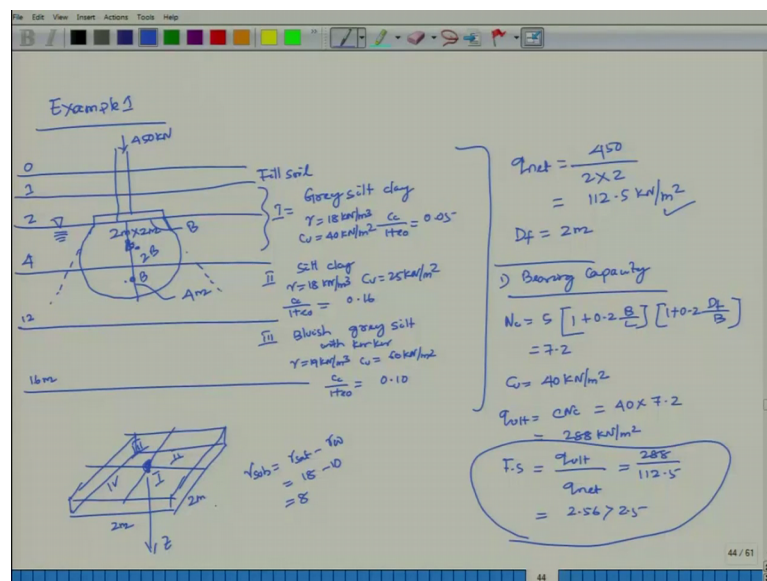 File Edit View Insert Actions Tools Help
B I
Example 1
450 KN
0
Fill soil
1
I = Grey silt clay
γ = 18 kN/m³ Cc/1+e0 = 0.05
Cu = 40 kN/m²
2
2m×2m
B
2B
4
B
4m
II silt clay
γ = 18 kN/m³ Cu = 25 kN/m²
Cc/1+e0 = 0.16
12
III Bluish grey silt
with kerker
γ = 19 kN/m³ Cu = 60 kN/m²
Cc/1+e0 = 0.10
16m
I
II
III
IV
2m
2m
Z
γsub = γsat - γw
= 18 - 10
= 8
qnet = 450 / 2×2
= 112.5 kN/m²
Df = 2m
1) Bearing Capacity
Nc = 5 [1+0.2 B/L] [1+0.2 Df/B]
= 7.2
Cu = 40 kN/m²
qult = CNc = 40 × 7.2
= 288 kN/m²
F.S = qult/qnet = 288/112.5
= 2.56 > 2.5
44 / 61
44